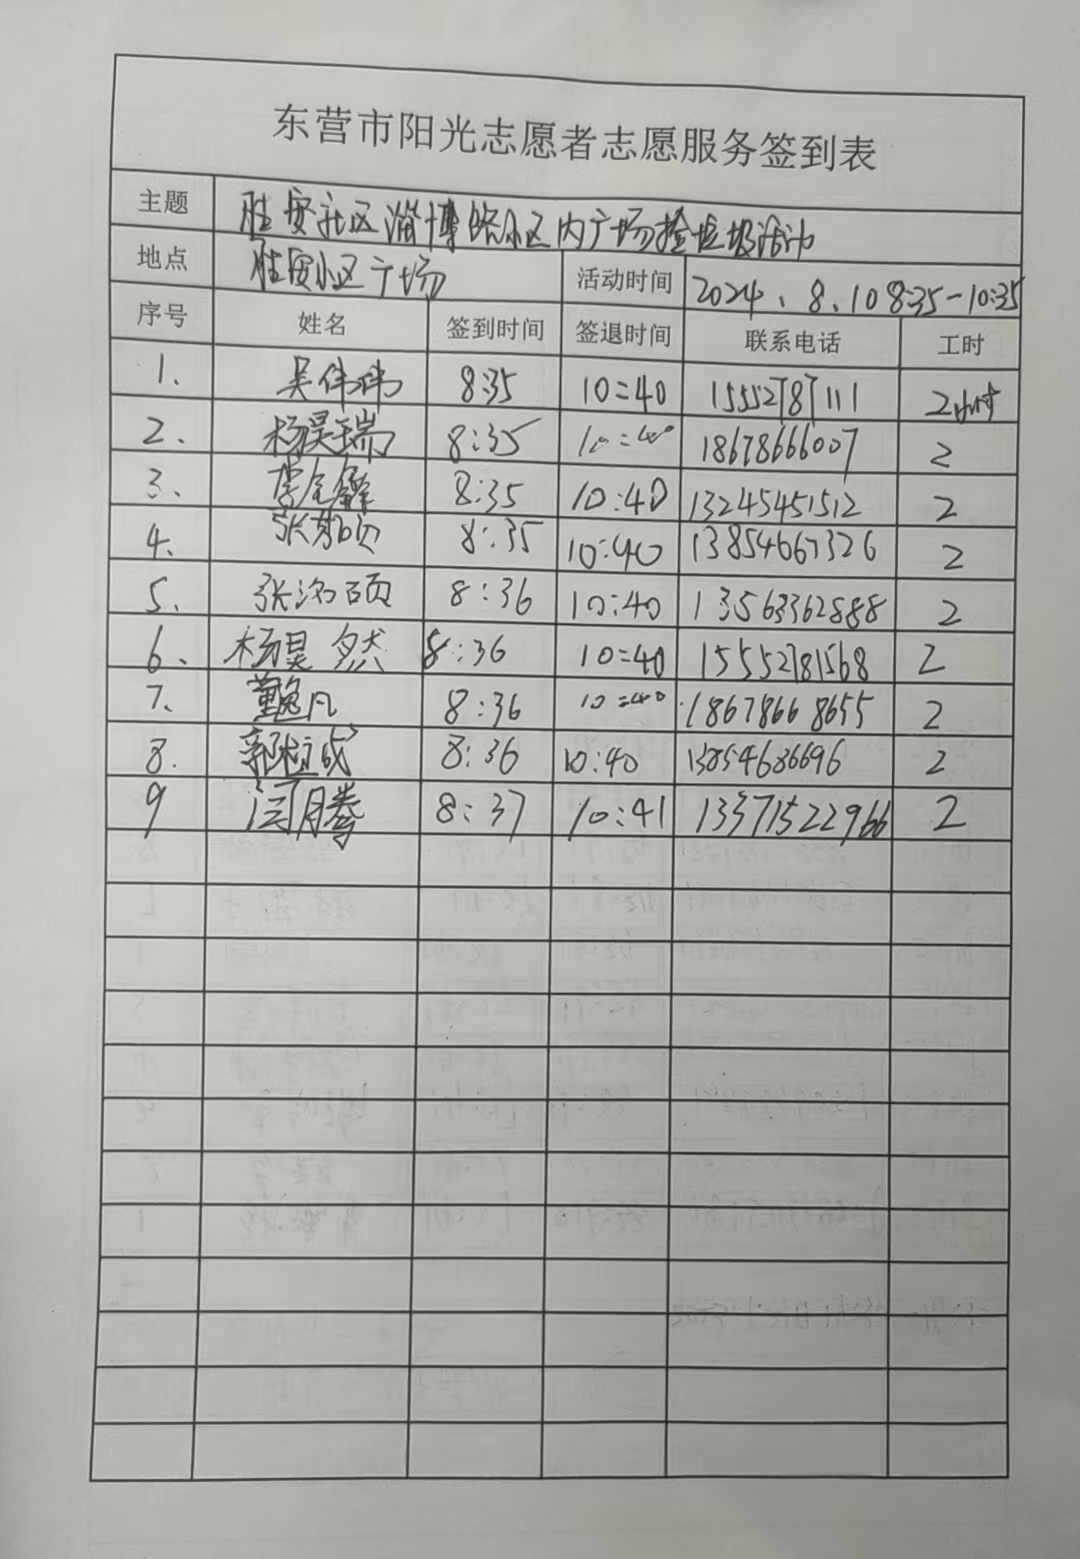 东营市阳光志愿者志愿服务签到表
主题 胜安社区淄博院小区内广场捡垃圾活动
地点 胜安小区广场 活动时间 2024、8、10 8:35-10:35
序号 姓名 签到时间 签退时间 联系电话 工时
1、 吴伟伟 8:35 10:40 15552787111 2小时
2、 杨昊瑞 8:35 10:40 18678666007 2
3、 8:35 10:40 13245451512 2
4、 8:35 10:40 13854667326 2
5、 张洺硕 8:36 10:40 13563362888 2
6、 杨昊然 8:36 10:40 15552781568 2
7、 董逸凡 8:36 10:40 18678668655 2
8. 郭桓成 8:36 10:40 13854686696 2
9 闫月腾 8:37 10:41 13371522966 2